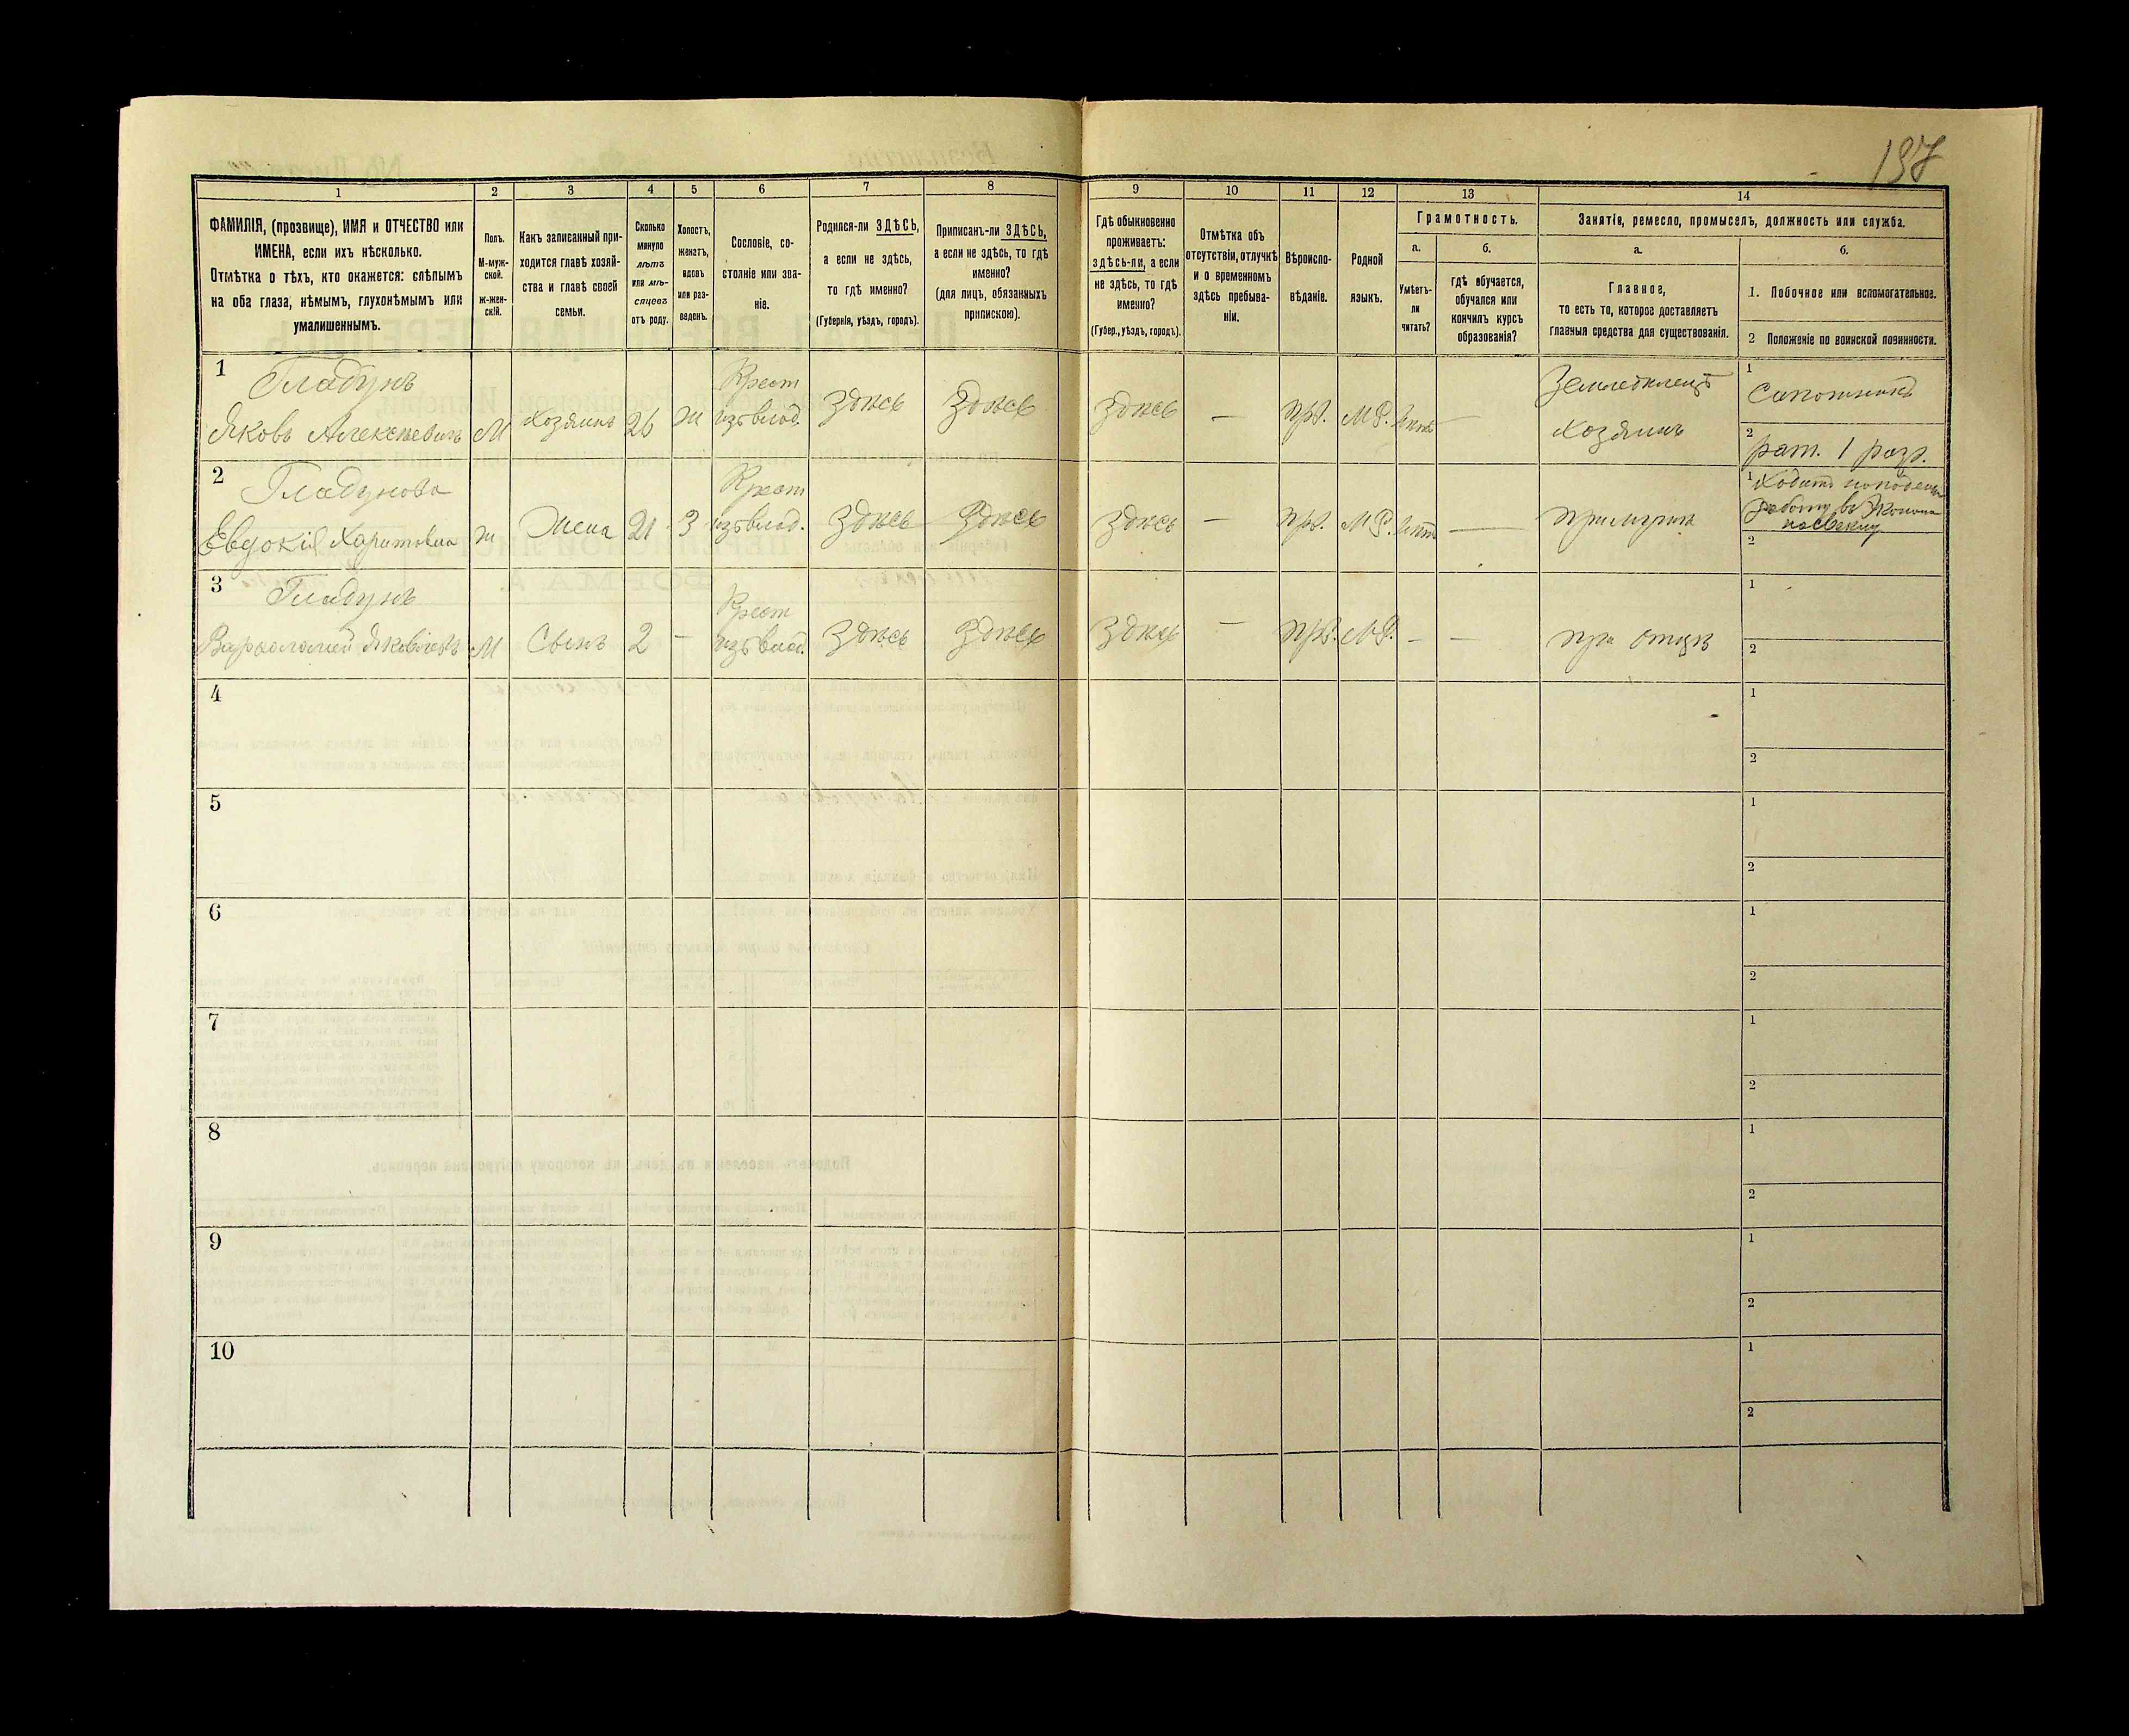 197
1
2
3
4
5
6
7
8
9
10
11
12
13
14
ФАМИЛІЯ, (прозвище), ИМЯ и ОТЧЕСТВО или
ИМЕНА, если ихъ нѣсколько.
Отмѣтка о тѣхъ, кто окажется: слѣпымъ
на оба глаза, нѣмымъ, глухонѣмымъ или
умалишеннымъ.
Полъ.
М-муж-
ской.
ж-жен-
скій.
Какъ записанный при-
ходится главѣ хозяй-
ства и главѣ своей
семьи.
Сколько
минуло
лѣтъ
или мѣ-
сяцевъ
отъ роду.
Холостъ,
женатъ,
вдовъ
или раз-
веденъ.
Сословіе, со-
стояніе или зва-
ніе.
Родился-ли ЗДѢСЬ,
а если не здѣсь,
то гдѣ именно?
(Губернія, уѣздъ, городъ).
Приписанъ-ли ЗДѢСЬ,
а если не здѣсь, то гдѣ
именно?
(для лицъ, обязанныхъ
припискою).
Гдѣ обыкновенно
проживаетъ:
здѣсь-ли, а если
не здѣсь, то гдѣ
именно?
(Губер., уѣздъ, городъ).
Отмѣтка объ
отсутствіи, отлучкѣ
и о временномъ
здѣсь пребыва-
ніи.
Вѣроиспо-
вѣданіе.
Родной
языкъ.
Грамотность.
а.
б.
Умѣетъ-
ли
читать?
гдѣ обучается,
обучался или
кончилъ курсъ
образованія?
Занятія, ремесло, промыселъ, должность или служба.
а.
б.
Главное,
то есть то, которое доставляетъ
главныя средства для существованія.
1. Побочное или вспомогательное.
2 Положеніе по воинской повинности.
1
Гладунъ
Яковъ Алексѣевичъ
М
Хозяинъ
26
Ж
Крест
изъ влад.
Здѣсь
Здѣсь
Здѣсь
—
прв.
М.Р.
нѣтъ
—
Земледѣлецъ
Хозяинъ
1
Сапожникъ
2
рат. 1 разр.
2
Гладунова
Евдокія Харитовна
Ж
Жена
21
З
Крест
изъ влад.
Здѣсь
Здѣсь
Здѣсь
—
прв.
М.Р.
нѣтъ
—
при мужѣ
1
Ходитъ
работу въ
2
3
Гладунъ
Варфоломей Яковлевъ
М
Сынъ
2
—
Крест
изъ влад.
Здѣсь
Здѣсь
Здѣсь
—
прв.
М.Р.
—
—
при отцѣ
1
2
4
1
2
5
1
2
6
1
2
7
1
2
8
1
2
9
1
2
10
1
2